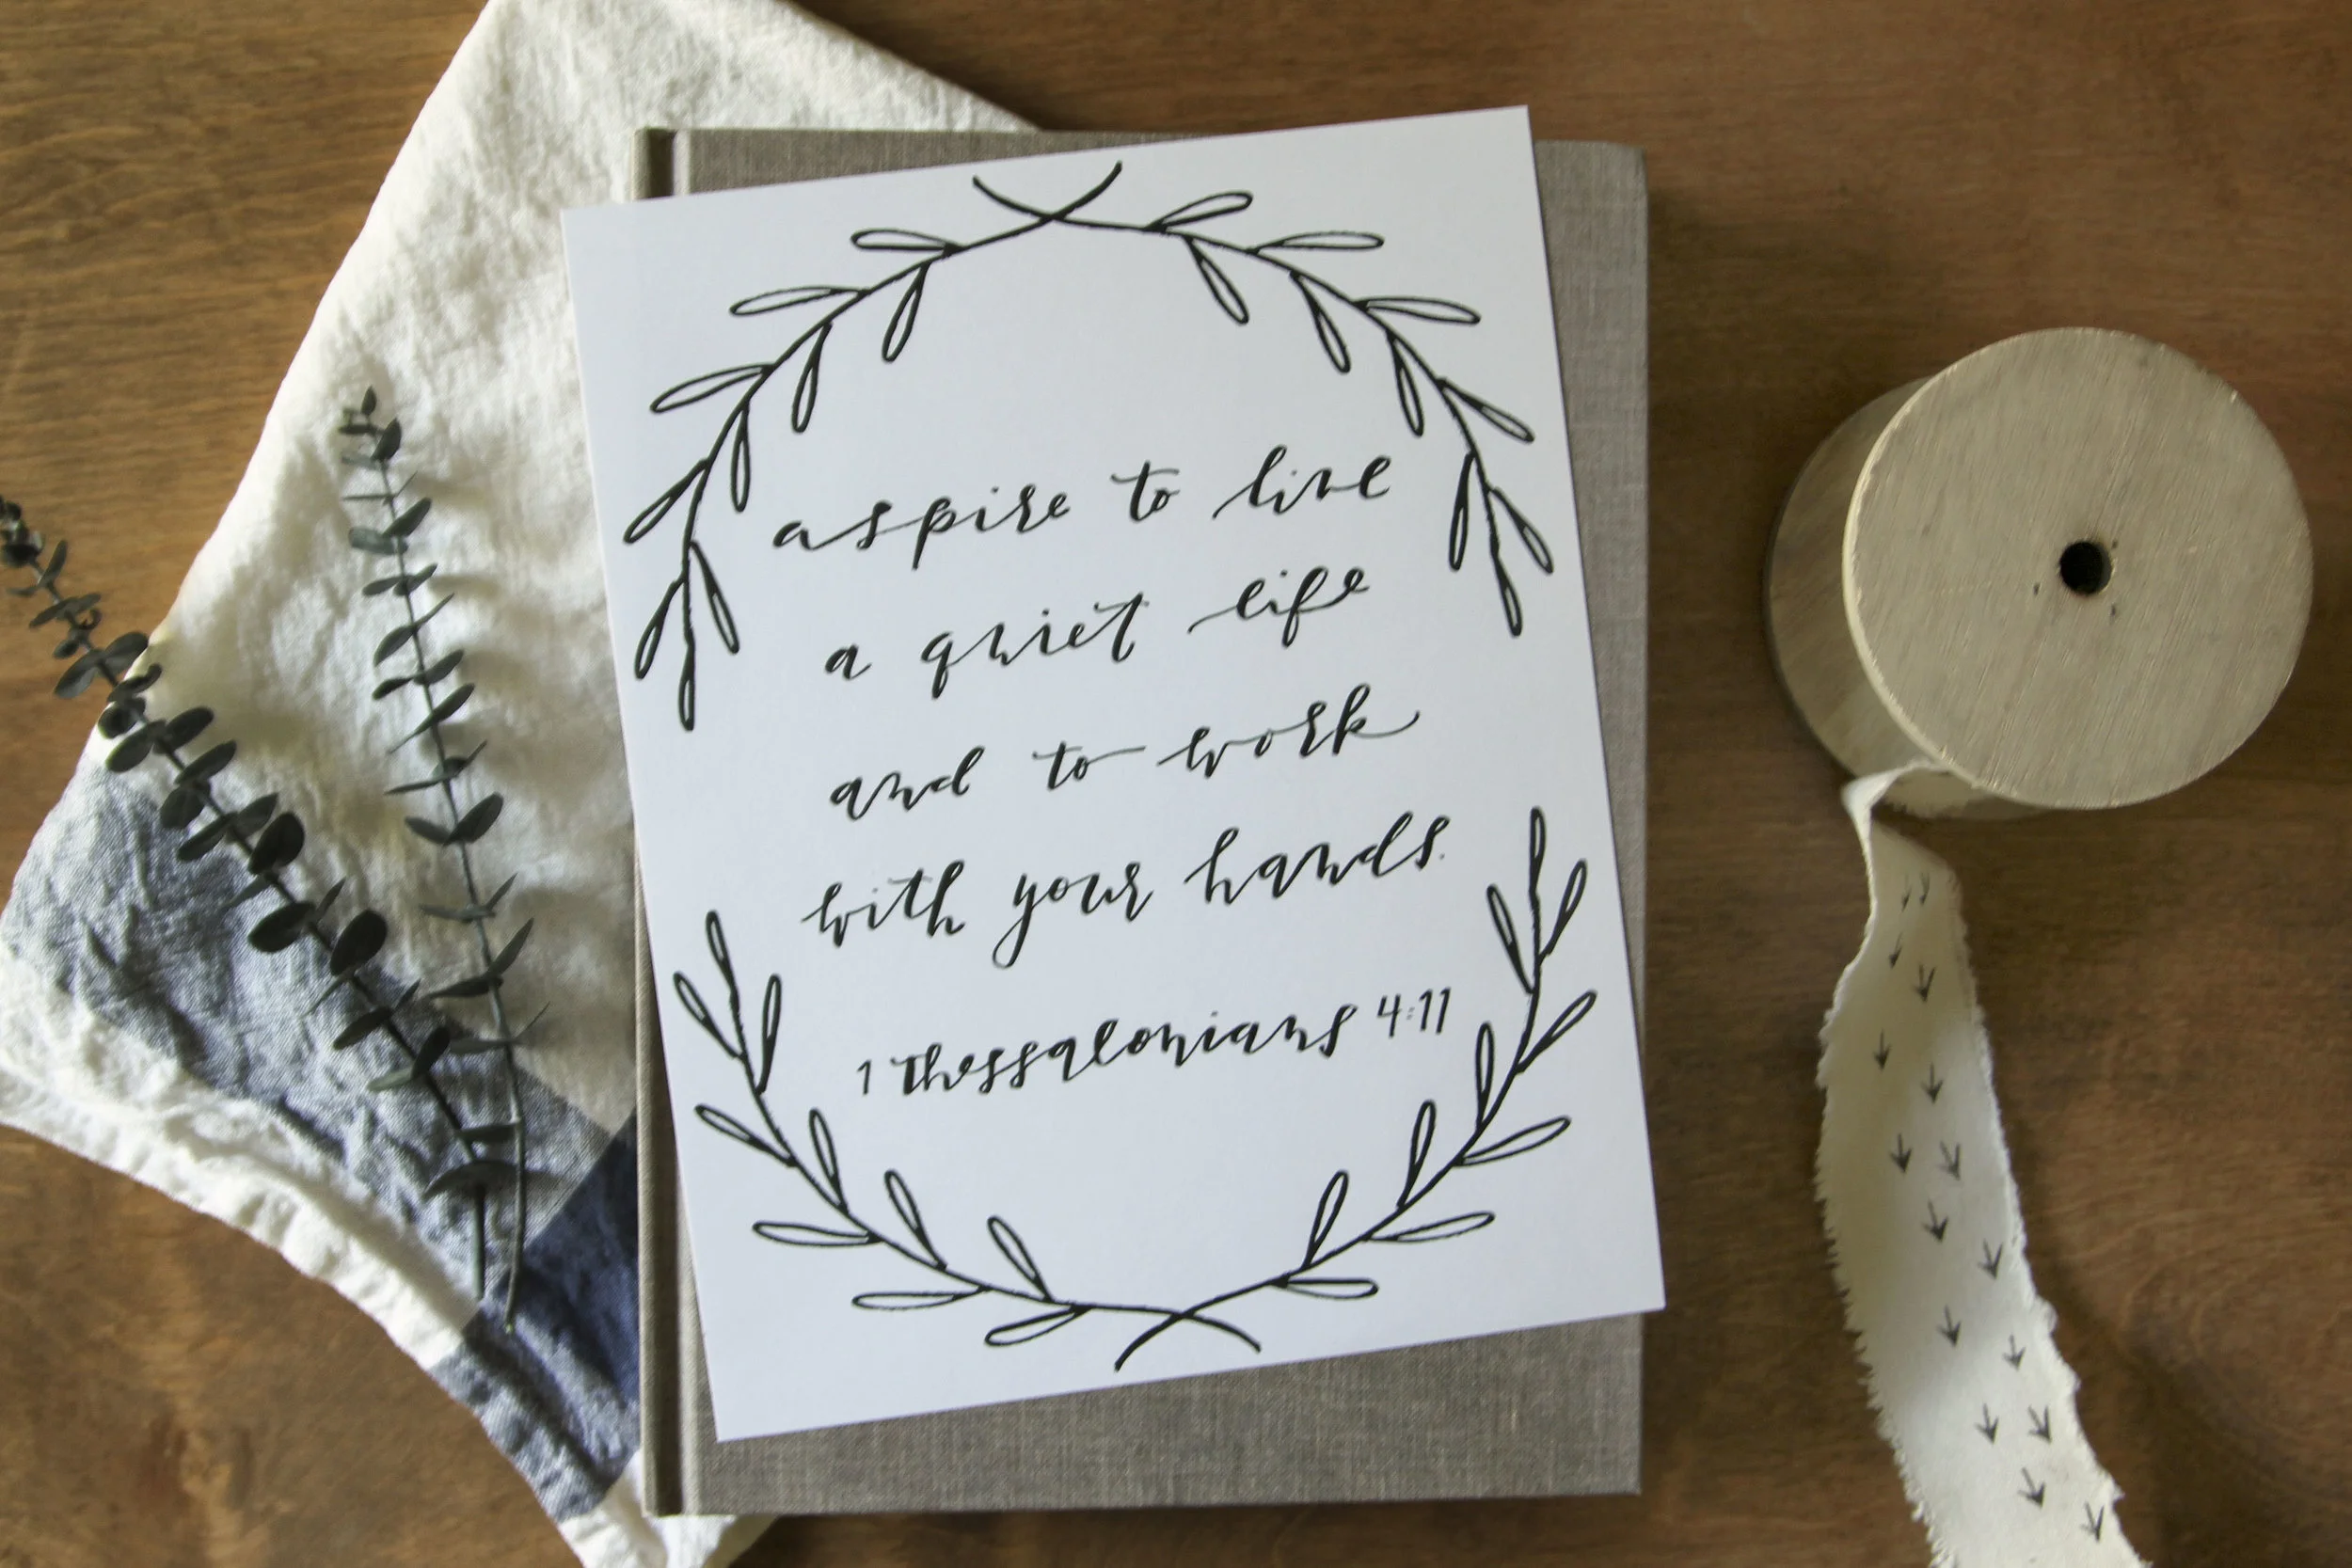 aspire to live
a quiet life
and to work
with your hands.
1 Thessalonians 4:11